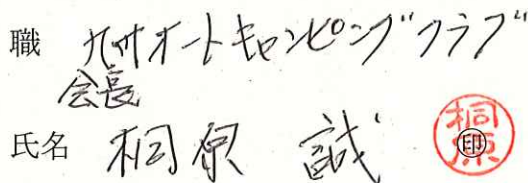 職 九州オートキャンピングクラブ
会長
氏名 桐原 誠 ㊞
桐原